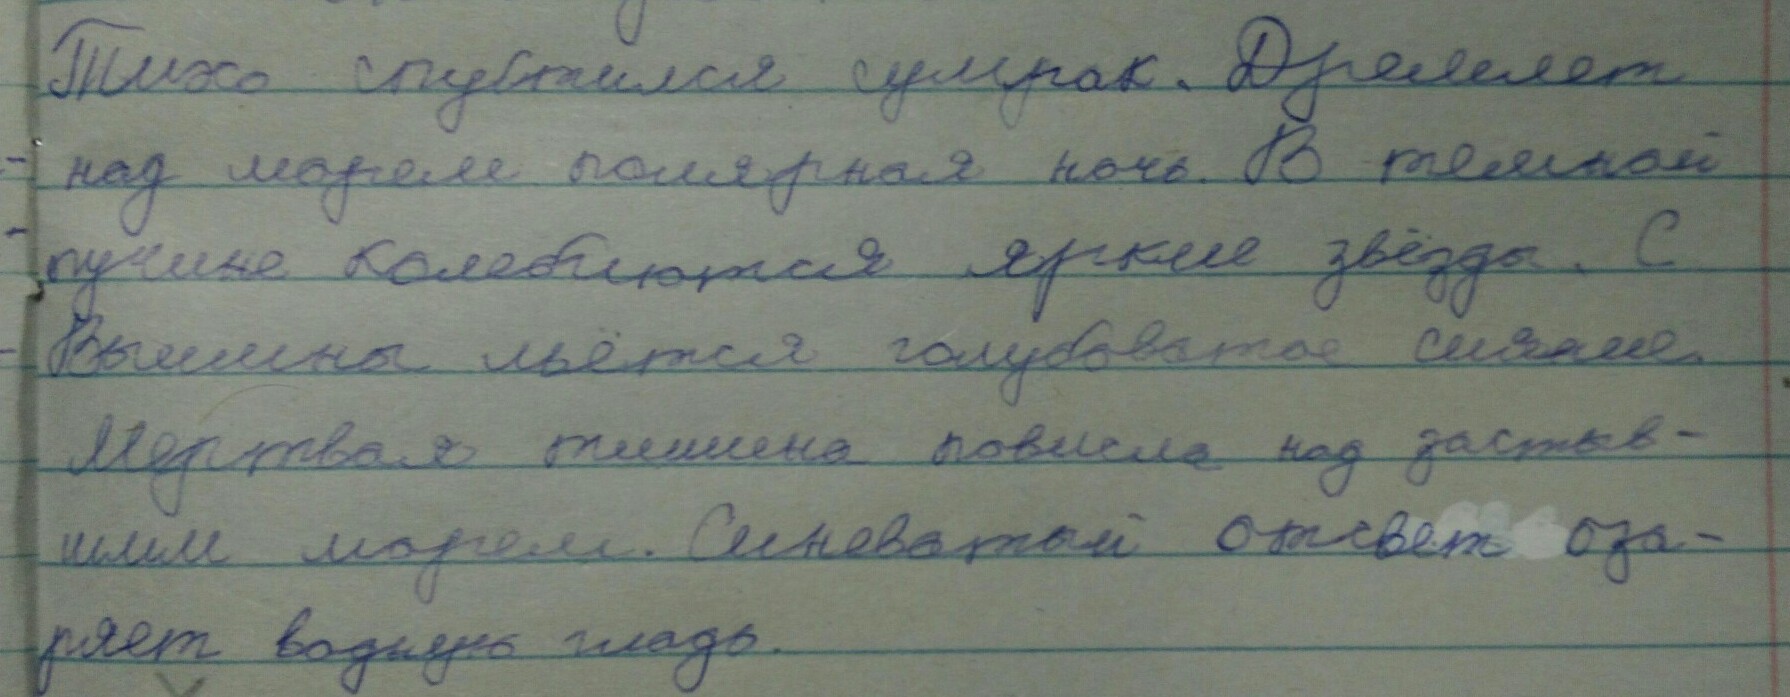 Тихо спустился сумрак. Дремлет
над морем полярная ночь. В темной
пучине колеблются яркие звёзды. С
Вышины льётся голубоватое сияние.
Мертвая тишина повисла над застыв-
шим морем. Синеватый отсвет оза-
ряет водную гладь.